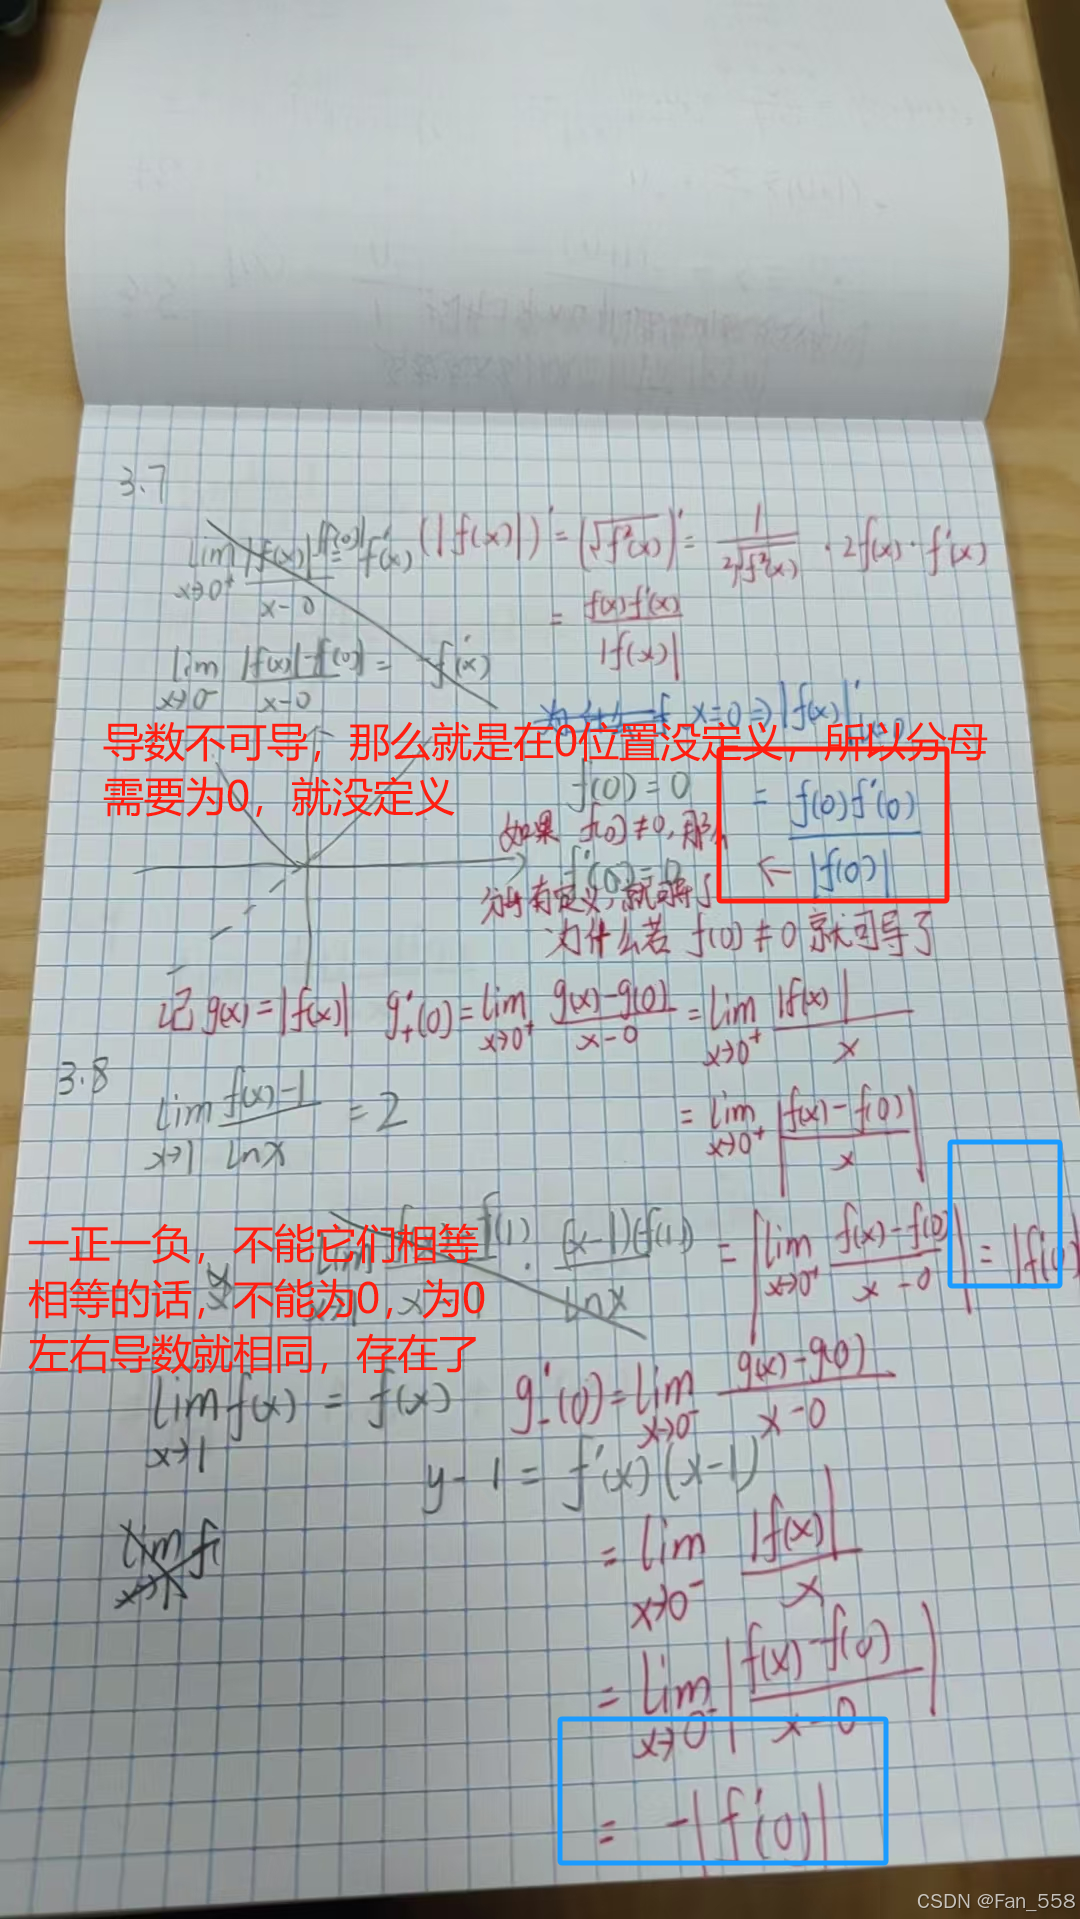 3.7
lim x→0⁺ |f(x)|-|f(0)| / x-0 = f'(x)
(|f(x)|)' = (√f²(x))' = 1 / 2√f²(x) · 2f(x) · f'(x)
= f(x)f'(x) / |f(x)|
lim x→0⁻ |f(x)|-f(0)| / x-0 = -f'(x)
x=0 ⇒ |f(x)|' x=0
导数不可导，那么就是在0位置没定义，所以分母
需要为0，就没定义
f(0) = 0
= f(0)f'(0) / |f(0)|
如果 f(0) ≠ 0, 那么
f'(0) = 0
分母有定义, 就可导了
为什么若 f(0) ≠ 0 就可导了
记 g(x) = |f(x)| g'₊(0) = lim x→0⁺ g(x)-g(0) / x-0 = lim x→0⁺ |f(x)| / x
3.8
lim x→1 f(x)-1 / lnx = 2
= lim x→0⁺ |f(x)-f(0) / x|
= |lim x→0⁺ f(x)-f(0) / x-0| = |f'(0)
一正一负，不能它们相等
相等的话，不能为0，为0
左右导数就相同，存在了
f(1) · (x-1)(f(1) / lnx
lim x→1 f(x) = f(x)
g'₋(0) = lim x→0⁻ g(x)-g(0) / x-0
y-1 = f'(x)(x-1)
lim x→1 f(
= lim x→0⁻ |f(x)| / x
= lim x→0⁻ |f(x)-f(0) / x-0|
= -|f'(0)|
CSDN @Fan_558